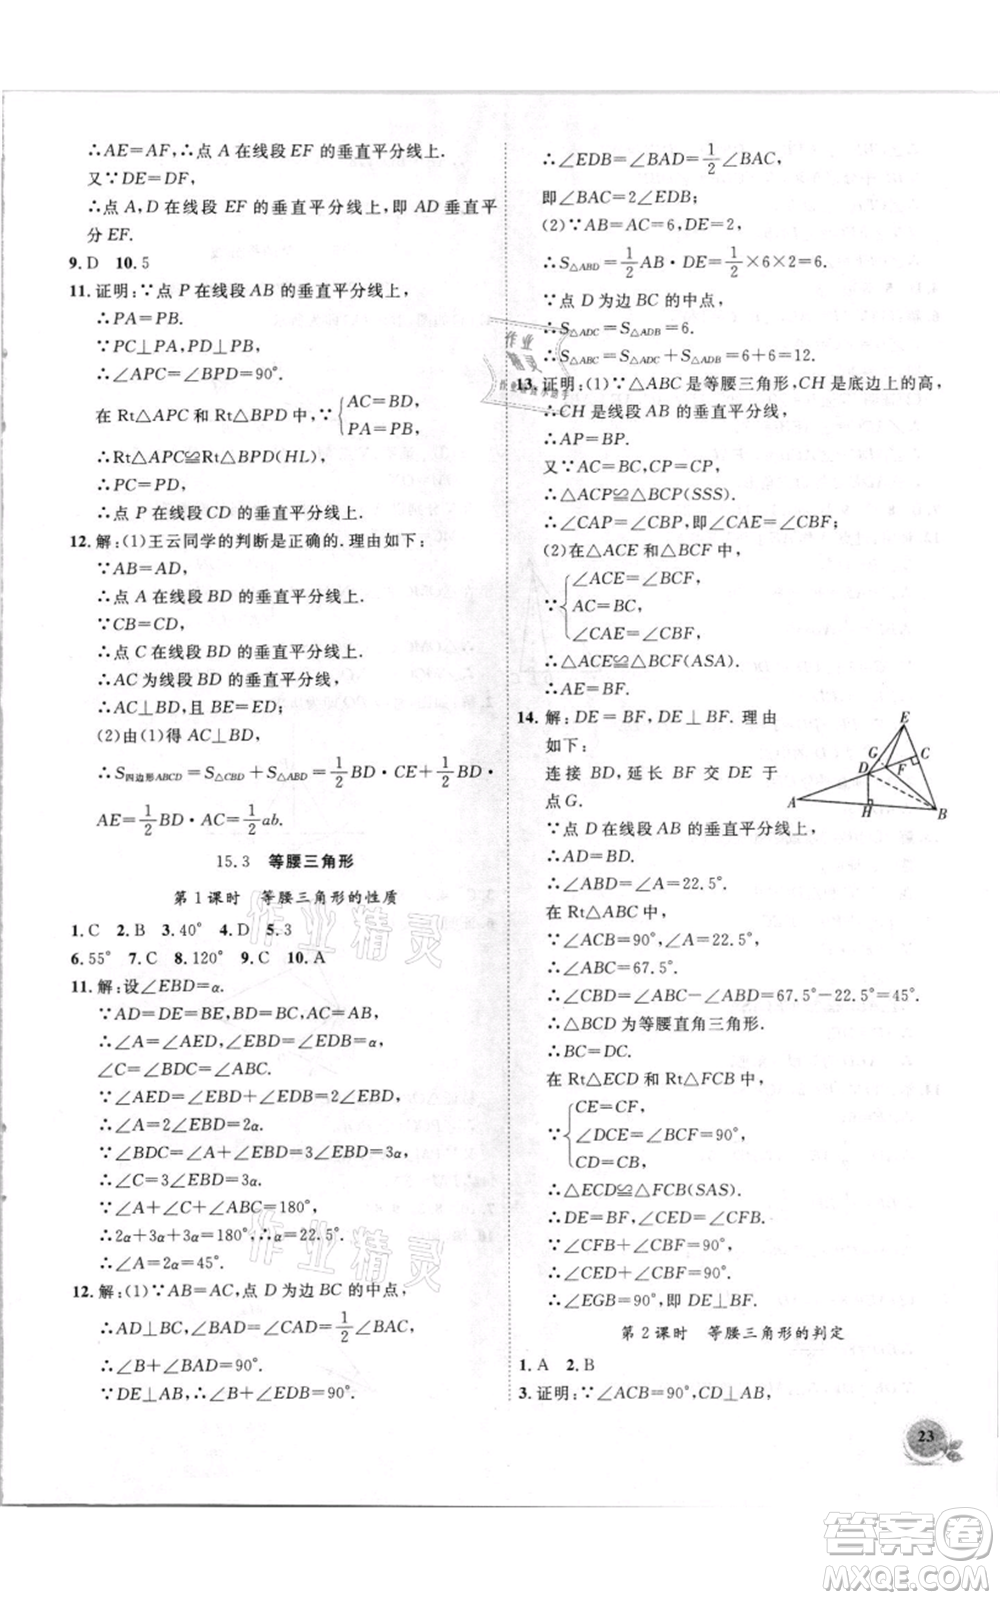 ∴AE=AF,∴点 A 在线段 EF 的垂直平分线上.
又∵DE=DF,
∴点 A,D 在线段 EF 的垂直平分线上,即 AD 垂直平
分 EF.
9.D 10.5
11.证明:∵点 P 在线段 AB 的垂直平分线上,
∴PA=PB.
∵PC⊥PA,PD⊥PB,
∴∠APC=∠BPD=90°.
在 Rt△APC 和 Rt△BPD 中,{AC=BD,
PA=PB,
∴Rt△APC≌Rt△BPD(HL),
∴PC=PD,
∴点 P 在线段 CD 的垂直平分线上.
12.解:(1)王云同学的判断是正确的.理由如下:
∵AB=AD,
∴点 A 在线段 BD 的垂直平分线上.
∵CB=CD,
∴点 C 在线段 BD 的垂直平分线上,
∴AC 为线段 BD 的垂直平分线,
∴AC⊥BD,且 BE=ED.
(2)由(1)得 AC⊥BD,
∴S四边形ABCD=S△CBD+S△ABD=1/2 BD·CE+1/2 BD·
AE=1/2 BD·AC=1/2 ab.
15.3 等腰三角形
第1课时 等腰三角形的性质
1.C 2.B 3.40° 4.D 5.3
6.55° 7.C 8.120° 9.C 10.A
11.解:设∠EBD=α.
∵AD=DE=BE,BD=BC,AB=AC,
∴∠A=∠AED,∠EBD=∠EDB=α,
∠C=∠BDC=∠ABC.
∵∠AED=∠EBD+∠EDB=2∠EBD,
∴∠A=2∠EBD=2α.
∵∠BDC=∠A+∠EBD=3∠EBD=3α,
∴∠C=3∠EBD=3α.
∵∠A+∠C+∠ABC=180°,
∴2α+3α+3α=180°,∴α=22.5°.
∴∠A=2α=45°.
12.解:(1)∵AB=AC,点 D 为边 BC 的中点,
∴AD⊥BC,∠BAD=∠CAD=1/2∠BAC,
∴∠B+∠BAD=90°.
∵DE⊥AB,∴∠B+∠EDB=90°,
∴∠EDB=∠BAD=1/2∠BAC,
即∠BAC=2∠EDB;
(2)∵AB=AC=6,DE=2,
∴S△ABD=1/2 AB·DE=1/2×6×2=6.
∵点 D 为边 BC 的中点,
∴S△ADC=S△ADB=6.
∴S△ABC=S△ADC+S△ADB=6+6=12.
13.证明:(1)∵△ABC 是等腰三角形,CH 是底边上的高,
∴CH 是线段 AB 的垂直平分线,
∴AP=BP.
又∵AC=BC,CP=CP,
∴△ACP≌△BCP(SSS).
∴∠CAP=∠CBP,即∠CAE=∠CBF;
(2)在△ACE 和△BCF 中,
∵{∠ACE=∠BCF,
AC=BC,
∠CAE=∠CBF,
∴△ACE≌△BCF(ASA).
∴AE=BF.
14.解:DE=BF,DE⊥BF.理由
如下:
连接 BD,延长 BF 交 DE 于
点G.
∵点 D 在线段 AB 的垂直平分线上,
∴AD=BD.
∴∠ABD=∠A=22.5°.
在 Rt△ABC 中,
∵∠ACB=90°,∠A=22.5°,
∴∠ABC=67.5°.
∴∠CBD=∠ABC-∠ABD=67.5°-22.5°=45°.
∴△BCD 为等腰直角三角形.
∴BC=DC.
在 Rt△ECD 和 Rt△FCB 中,
∵{CE=CF,
∠DCE=∠BCF=90°,
CD=CB,
∴△ECD≌△FCB(SAS).
∴DE=BF,∠CED=∠CFB.
∵∠CFB+∠CBF=90°,
∴∠CED+∠CBF=90°,
∴∠EGB=90°,即 DE⊥BF.
第2课时 等腰三角形的判定
1.A 2.B
3.证明:∵∠ACB=90°,CD⊥AB,
E
G
C
D
F
A
H
B
作业
精灵
作业精灵
作业精灵
23
答案卷
MXQE.COM